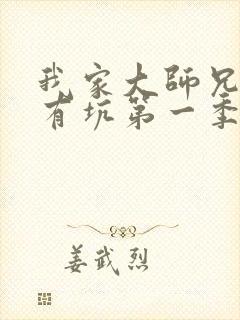 我家大师兄
有坑第一季
姜武烈